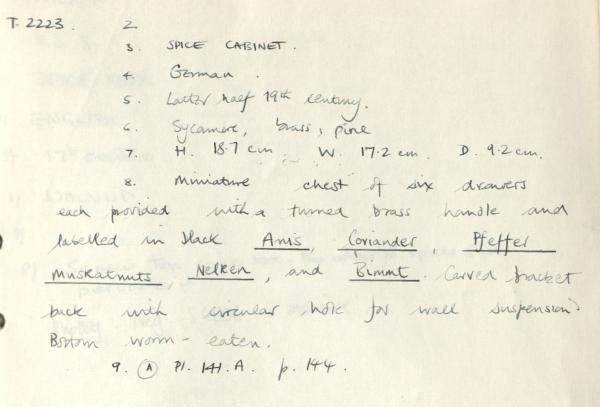 T. 2223. 2
3. SPICE CABINET.
4. German.
5. Latter half 19th century.
6. Sycamore, brass, pine
7. H. 18.7 cm. W. 17.2 cm. D. 9.2 cm.
8. Miniature chest of six drawers
each provided with a turned brass handle and
labelled in black Anis, Coriander, Pfeffer
Muskatnuts Nelken, and Bimmt. Carved bracket
back with circular hole for wall suspension.
Bottom worm-eaten.
9. A Pl. 141. A. p. 144.